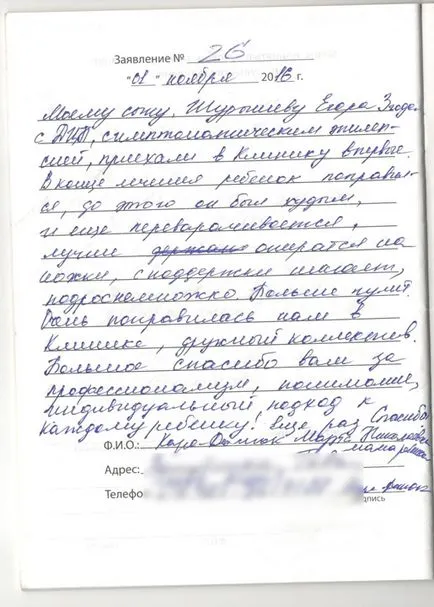 Заявление № 26
"01" ноября 2016 г.
Моему сыну, Егора 3 года
с ДЦП, симптоматическим эпилеп-
сией, приехали в Клинику впервые.
В конце лечения ребенок поправил-
ся, до этого он был худым,
и еще переворачивается,
лучше опирается на
ножки, с поддержки шагает,
подрос немножко. Больше гулит.
Очень понравилась нам в
Клинике, дружный коллектив.
Большое спасибо вам за
профессионализм, понимание,
индивидуальный подход к
каждому ребенку! Еще раз Спасибо
Ф.И.О.: Николаевна
мама
Адрес:
Телефо
дпись